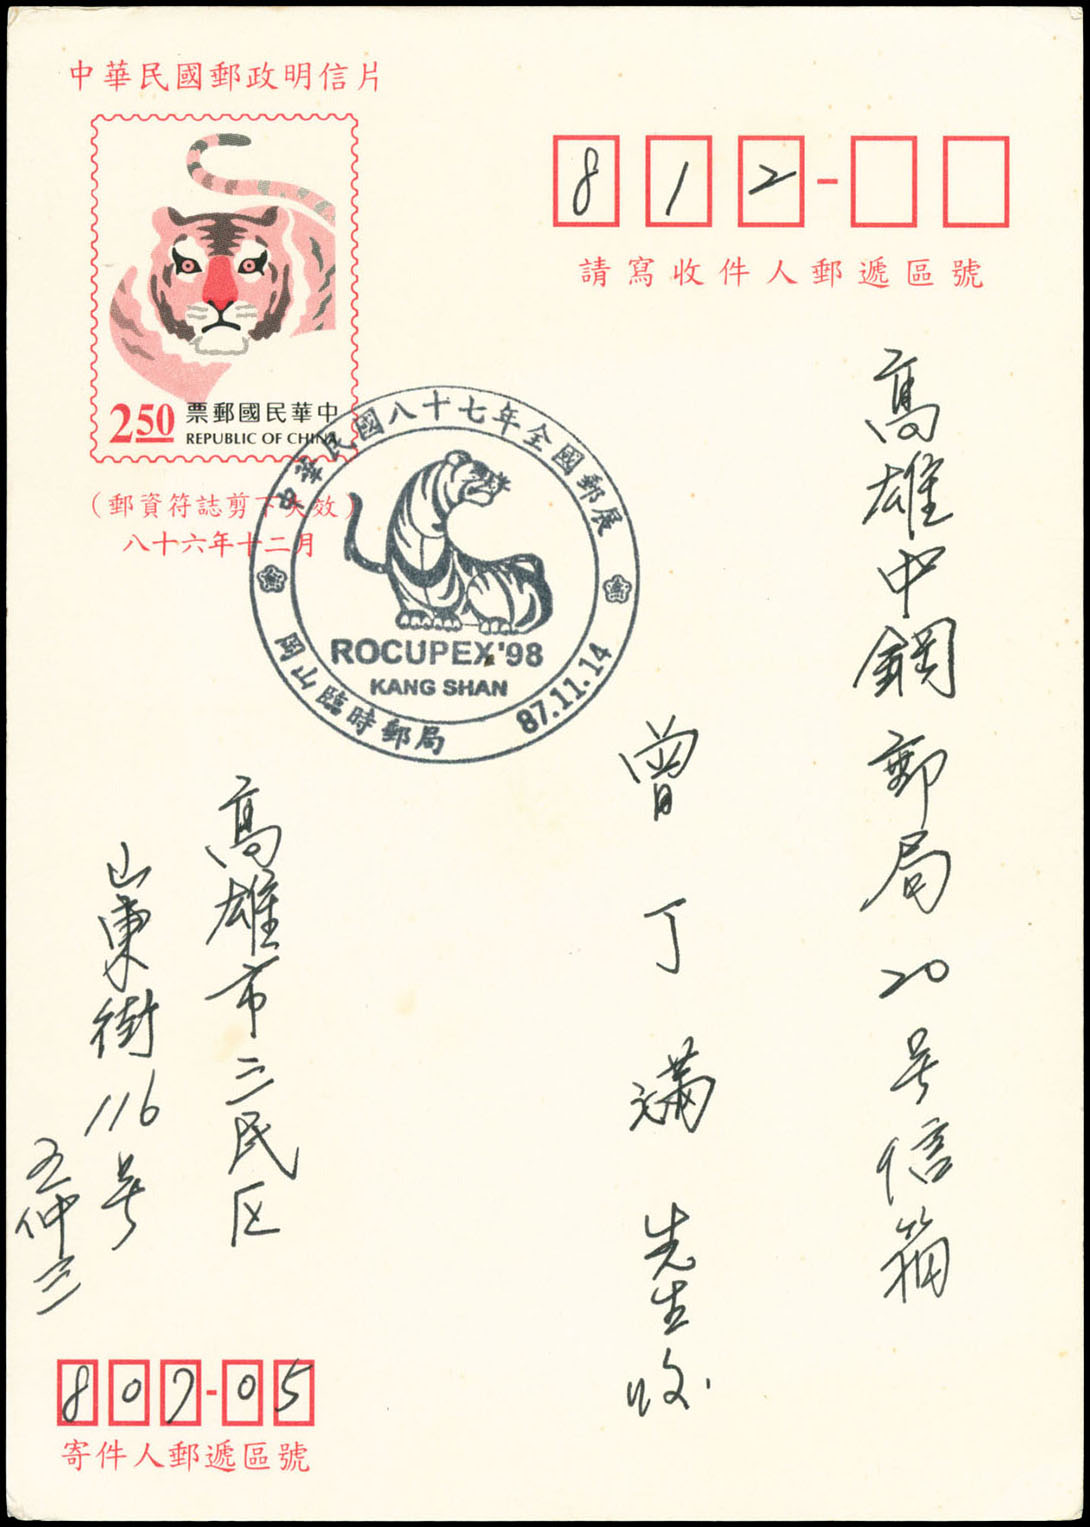 中華民國郵政明信片
2.50
票郵國民華中
REPUBLIC OF CHINA
(郵資符誌剪下失效)
八十六年十二月
812-
請寫收件人郵遞區號
中華民國八十七年全國郵展
ROCUPEX'98
KANG SHAN
岡山臨時郵局
87.11.14
高雄中鋼郵局20号信箱
曾丁滿先生收
高雄市三民区
山東街116号
王仲三
807-05
寄件人郵遞區號